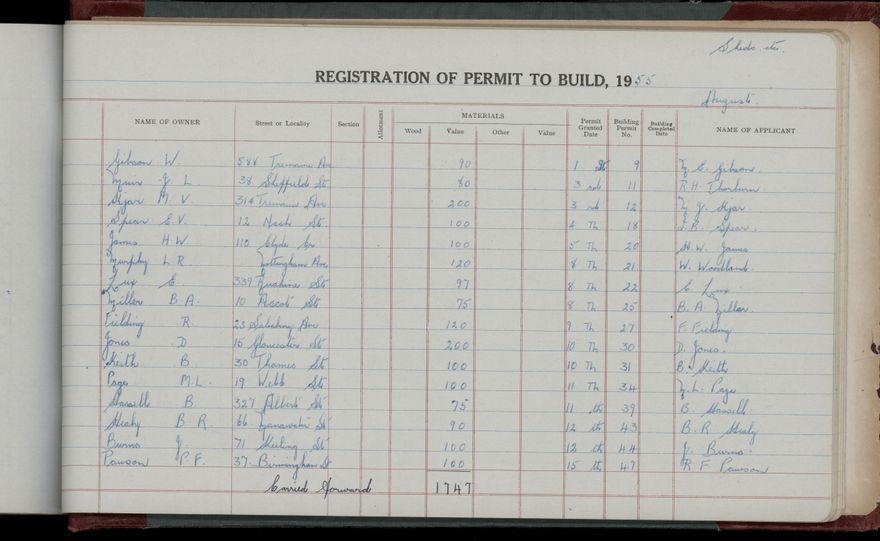 Sheds etc.
REGISTRATION OF PERMIT TO BUILD, 1955
August.
NAME OF OWNER Street or Locality Section Allotment MATERIALS Wood Value Other Value Permit Granted Date Building Permit No. Building Completed Date NAME OF APPLICANT
Gibson W. 588 Tremaine Av 90 1 St 9 M. E. Gibson.
Muir J. L. 38 Sheffield St 80 3 rd 11 R. H. Thorburn
M. V. 314 Tremaine Ave 200 3 rd 12
Spear E. V. 12 Nash St. 100 4 Th 18 Spear.
James H. W. 110 Clyde Cr 100 5 Th 20 H. W. James
Murphy L. R. Nottingham Ave 120 8 Th 21 W. Woodland.
Lux E. 339 St 97 8 Th 22 E. Lux.
Miller B. A. 10 Ascot St 75 8 Th 25 B. A. Miller
Fielding R. 23 Salisbury Ave 120 9 Th 27 F. Fielding
Jones D 15 Gloucester St 200 10 Th 30 D. Jones.
Keith B 30 Thames St 100 10 Th 31 B. Keith
Page M. L. 19 Webb St 100 11 Th 34 M. L. Page
Hassell B 327 Albert St 75 11 th 39 B. Hassell
Healy B. R. 66 Manawatu St 90 12 th 43 B. R. Healy
Burns J. 71 Keeling St 100 12 th 44 J. Burns.
Pawson P. F. 37. Birmingham St 100 15 th 47 R. F. Pawson
Carried forward 1747